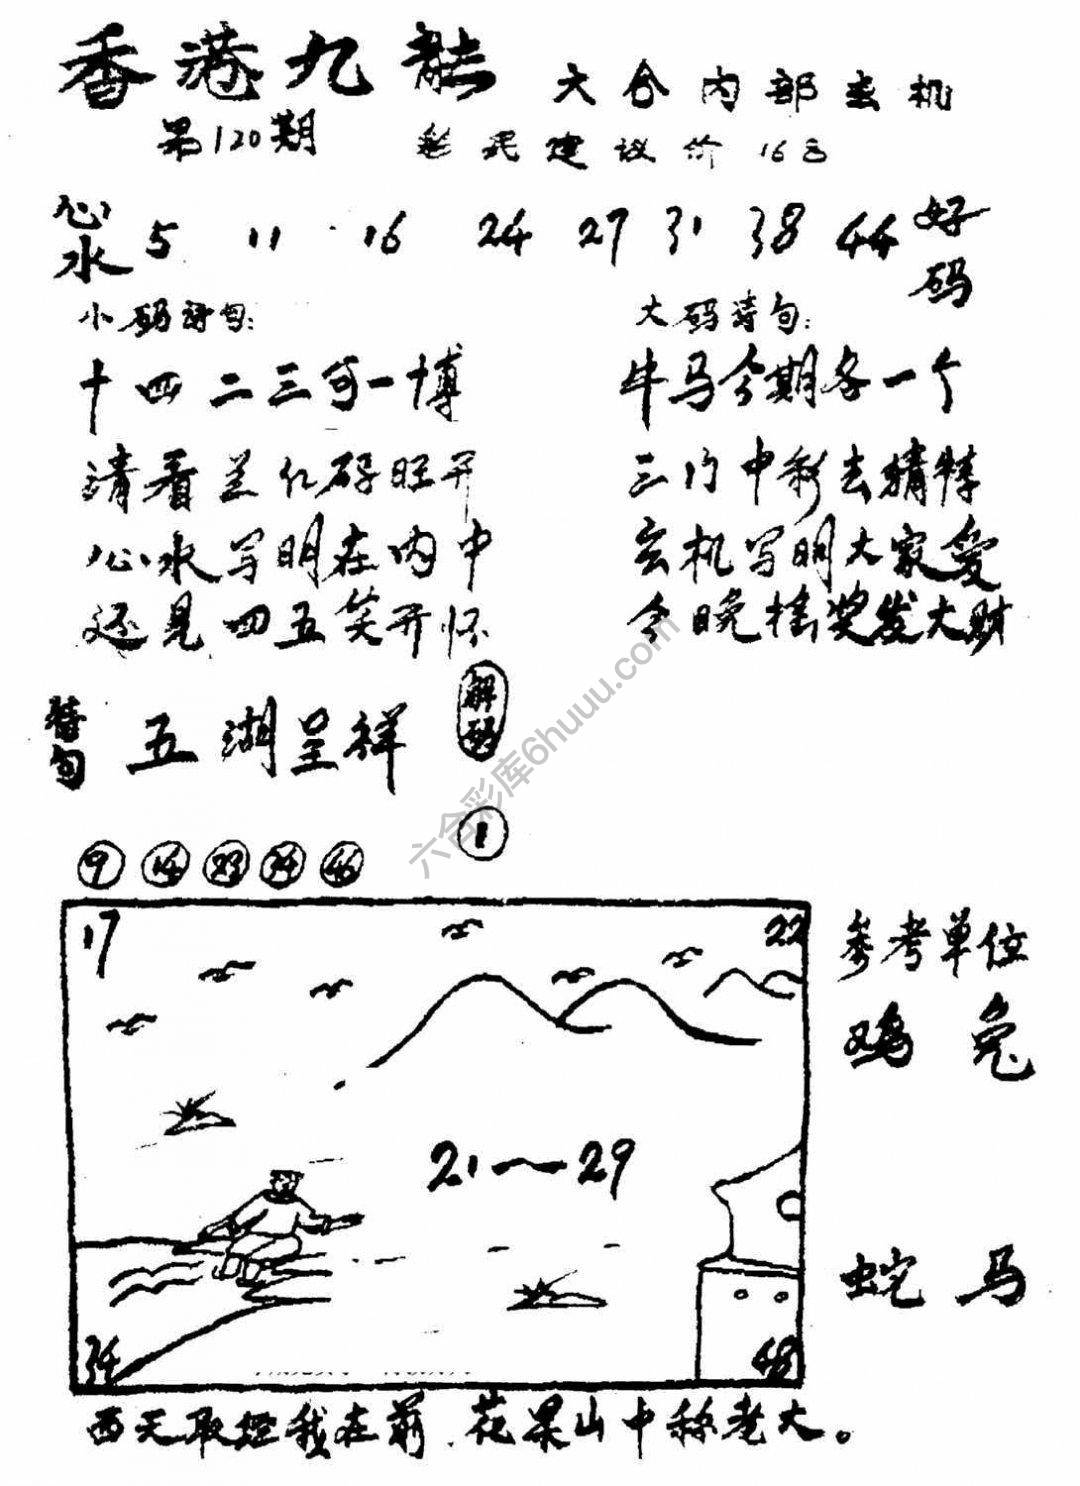 香港九龍 六合内部玄机
第120期 彩民建议价16名
心水 5 11 16 24 27 31 38 44 好码
小码诗句: 大码诗句:
十四二三可一博 牛马今期各一个
请看兰亿码旺开 三门中彩去精特
心水写明在内中 玄机写明大家爱
还见四五笑开怀 今晚摇奖发大财
诗句 五湖呈祥 解码
1
9 14 23 34 46
17 22
参考单位
鸡 兔
21—29
蛇 马
34 48
西天取经我在前.花果山中称老大。
六合彩库6huuu.com